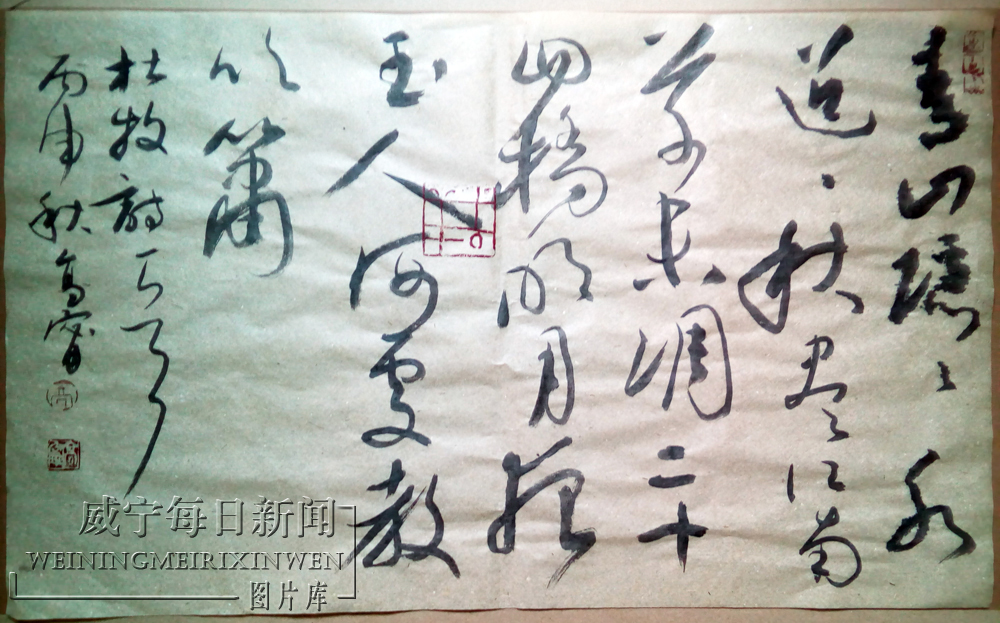 青山隱〻水
迢〻秋盡江南
草未凋二十
四橋明月夜
玉人何處教
吹簫
杜牧詩
丙申秋高
威宁每日新闻
WEININGMEIRIXINWEN
图片库